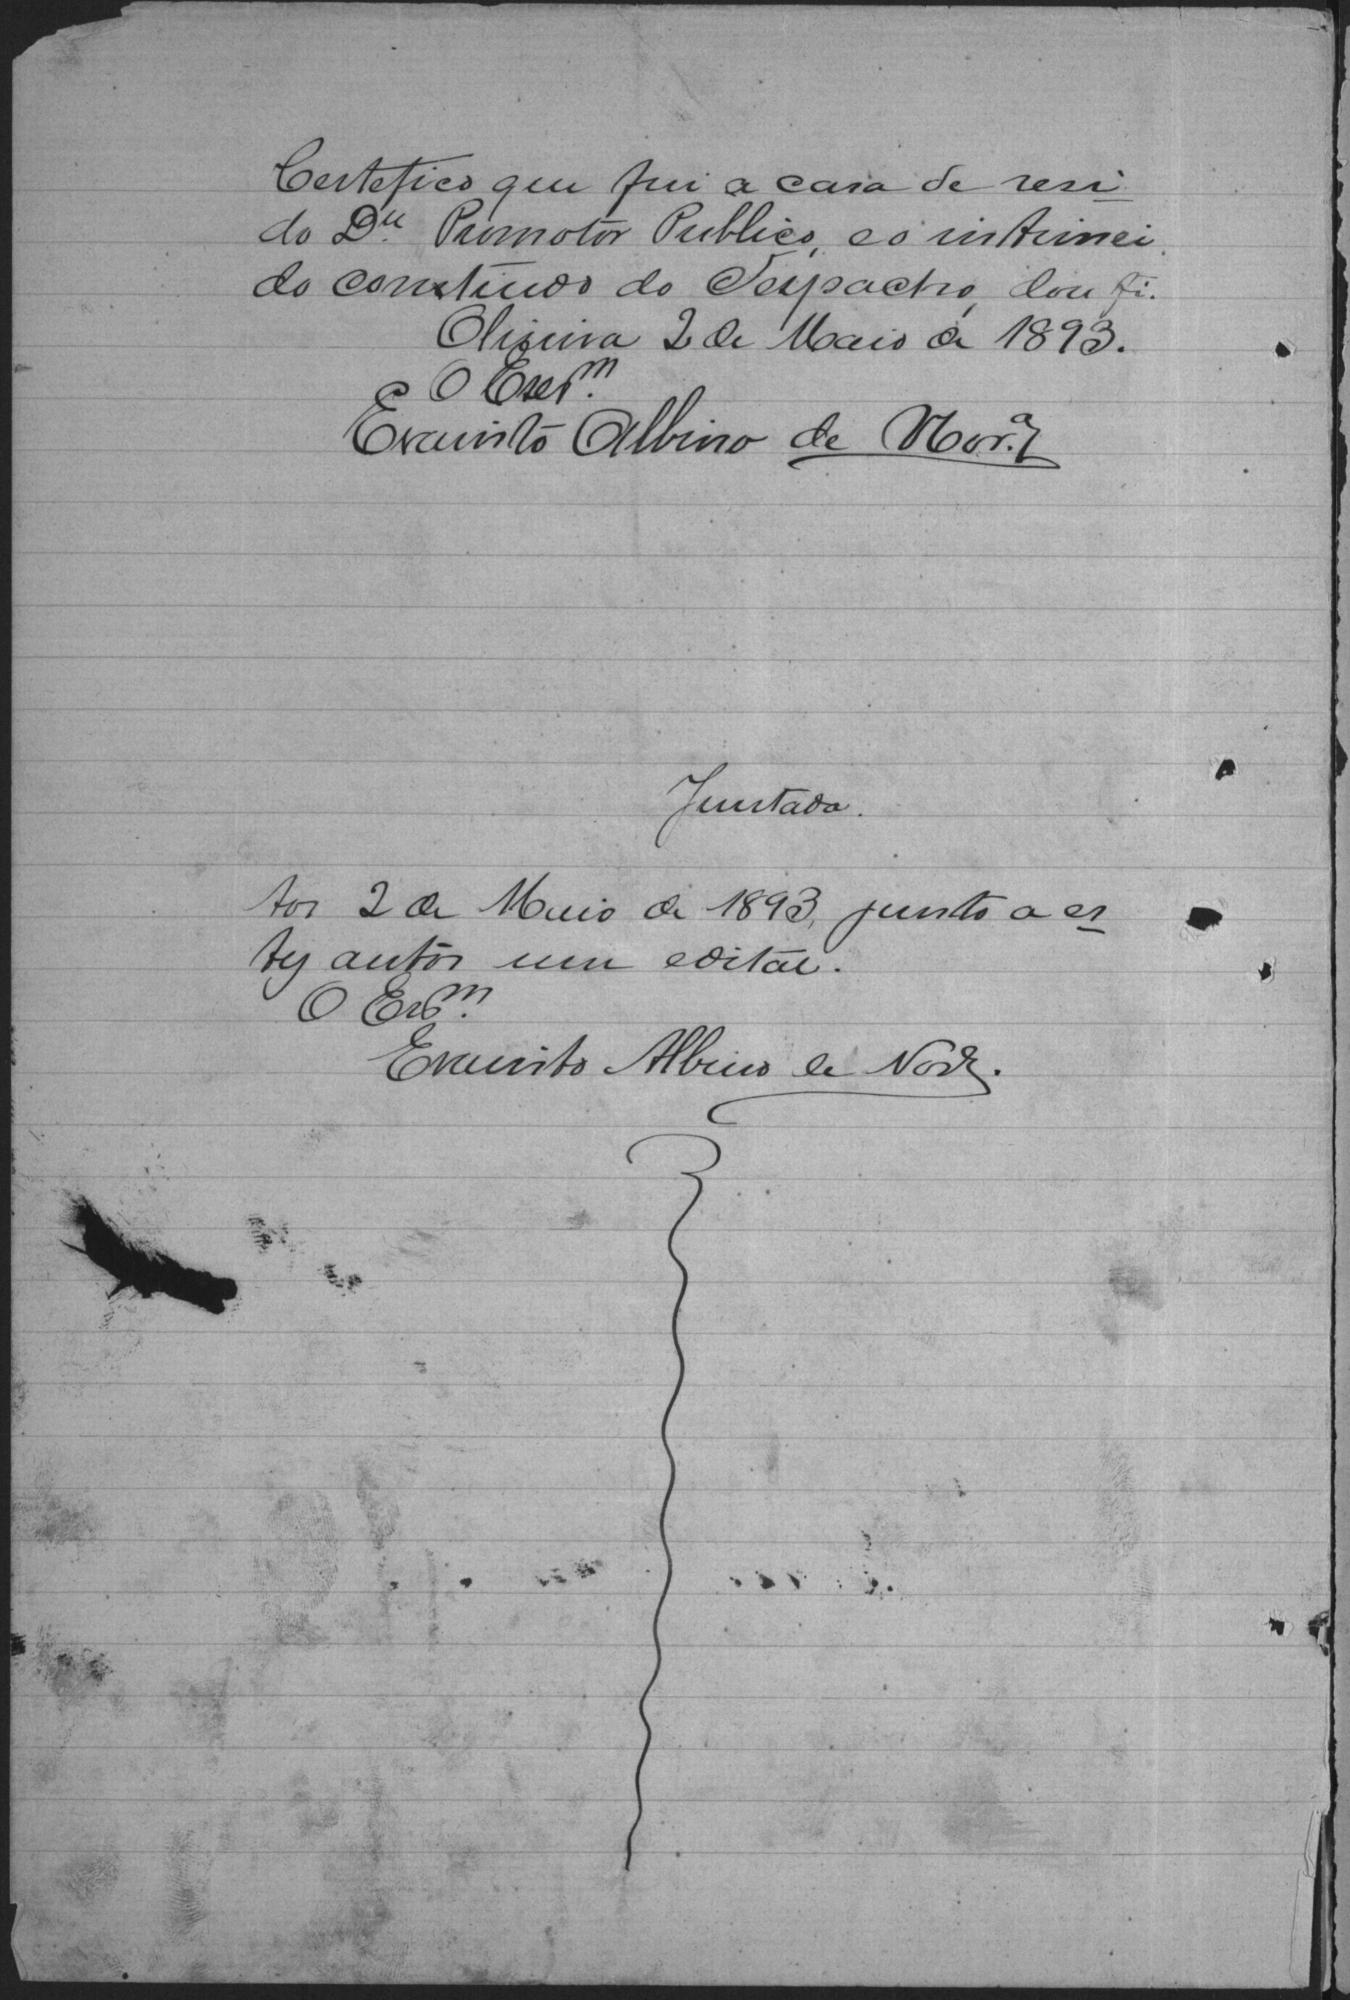 Certefico que fui a casa de resi
do Dr. Promotor Publico, e o intimei
do conteudo do Despacho, dou fé.
Oliveira 2 de Maio de 1893.
O Escrm.
Albino de
Juntada.
Aos 2 de Maio de 1893, junto a es
tes autos um edital.
O Escm.
Albino de